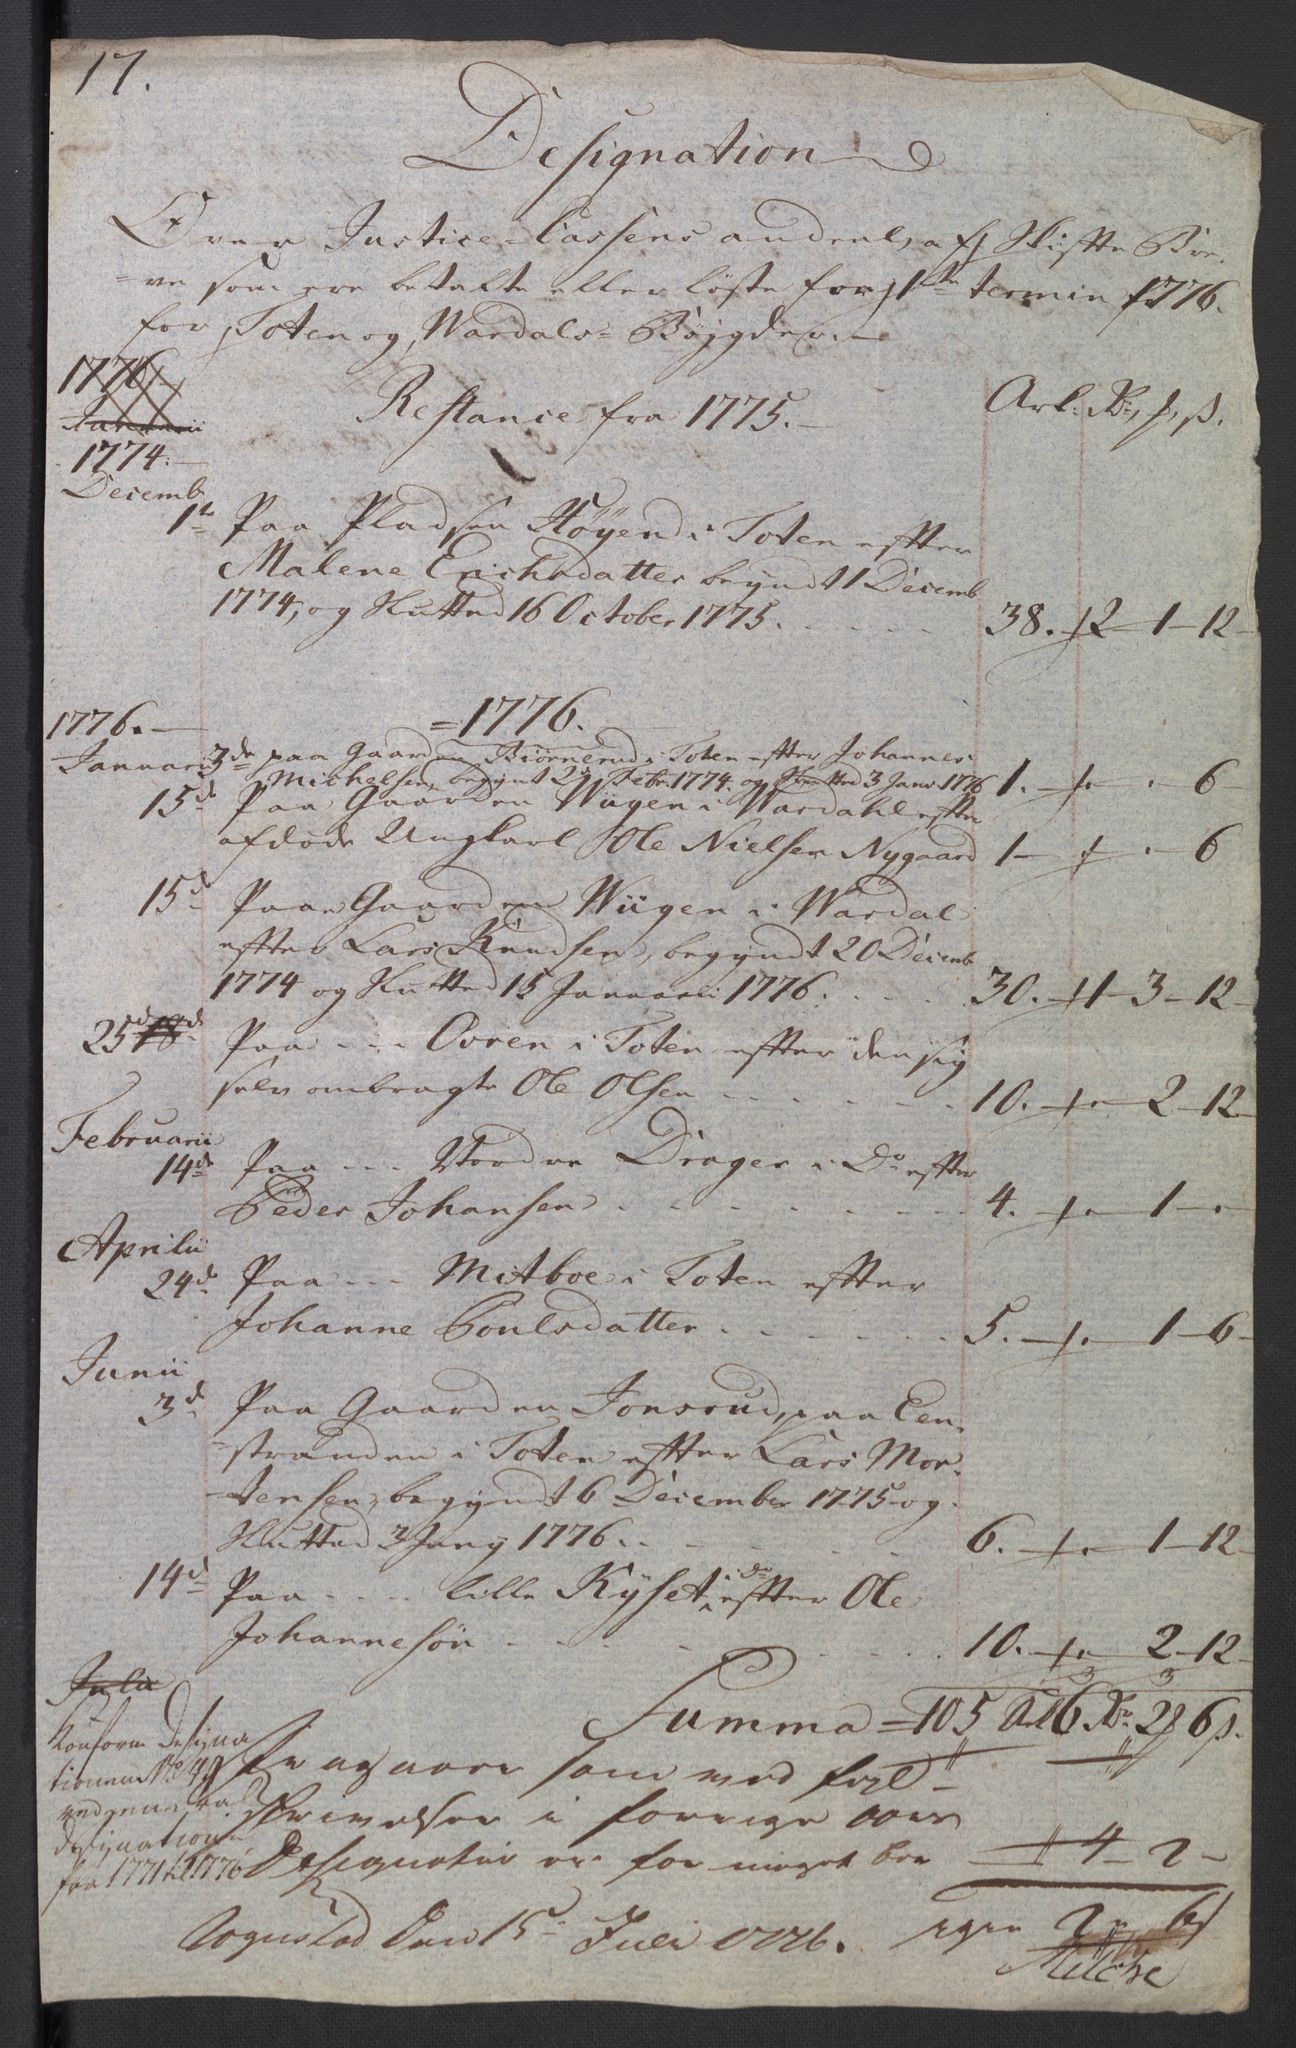 17.
Designation
Over Justice-Cassens andeel af Skiftte Bre-
-ve som ere betalte eller løste for 1te termin 1776.
for Toten og Wardals-Bøygder.
1776
Januarii
Restance fra 1775.
Ark: Rd, ß.
1774.
Decemb
1te Paa Pladsen Høyen i Toten effter
Malene Erichsdatter begyndt 1 Decemb
1774, og sluttet 16 October 1775. 38. 2 - 1 - 12
1776. = 1776.
Januari 3de paa Gaarden Biørnerud i Toten effter Johannes
Michelsen, begynt 29 Febr. 1774. og sluttet 3 Janv 1776 1. 6
15d Paa Gaarden Wügen i Wardahl effter
afdøde Ungkarl Ole Nielsen Nygaard 1 - 6
15d Paa Gaarden Wügen i Wardal
effter Lars Knudsen, begyndt 20 Decemb
1774 og sluttet 15 Januarii 1776. 30. 1 - 3 - 12
25d 18d Paa - - - Ovren i Toten effter den sig
selv ombragte Ole Olsen 10. 2 - 12
Februarii
14de Paa - - - Nordre Drager i Do effter
Peder Johansen 4. 1 -
Aprilii
24de Paa - - - Mitboe i Toten effter
Johanne Poulsdatter 5. 1 - 6
Junii
3d Paa Gaarden Jonsrud, paa Een-
-stranden i Toten effter Lars Mor-
-tensen, begyndt 6 December 1775 og
sluttet 3 Juny 1776. 6. 1 - 12
14d Paa - - - lille Kyset i do effter Ole
Johannesøn 10. 2 - 12
Julii
Summa = 105 Ark 6 Rd 2 6 ß.
Konform Designa
tionen No 49
ved general
designationen
fra 1771 til 1776
som ved feyl-
skrivelser i forrige aars
Designation er for meget be 4 - 2 -
igien 2 - 6
den 15de Juli 1776.